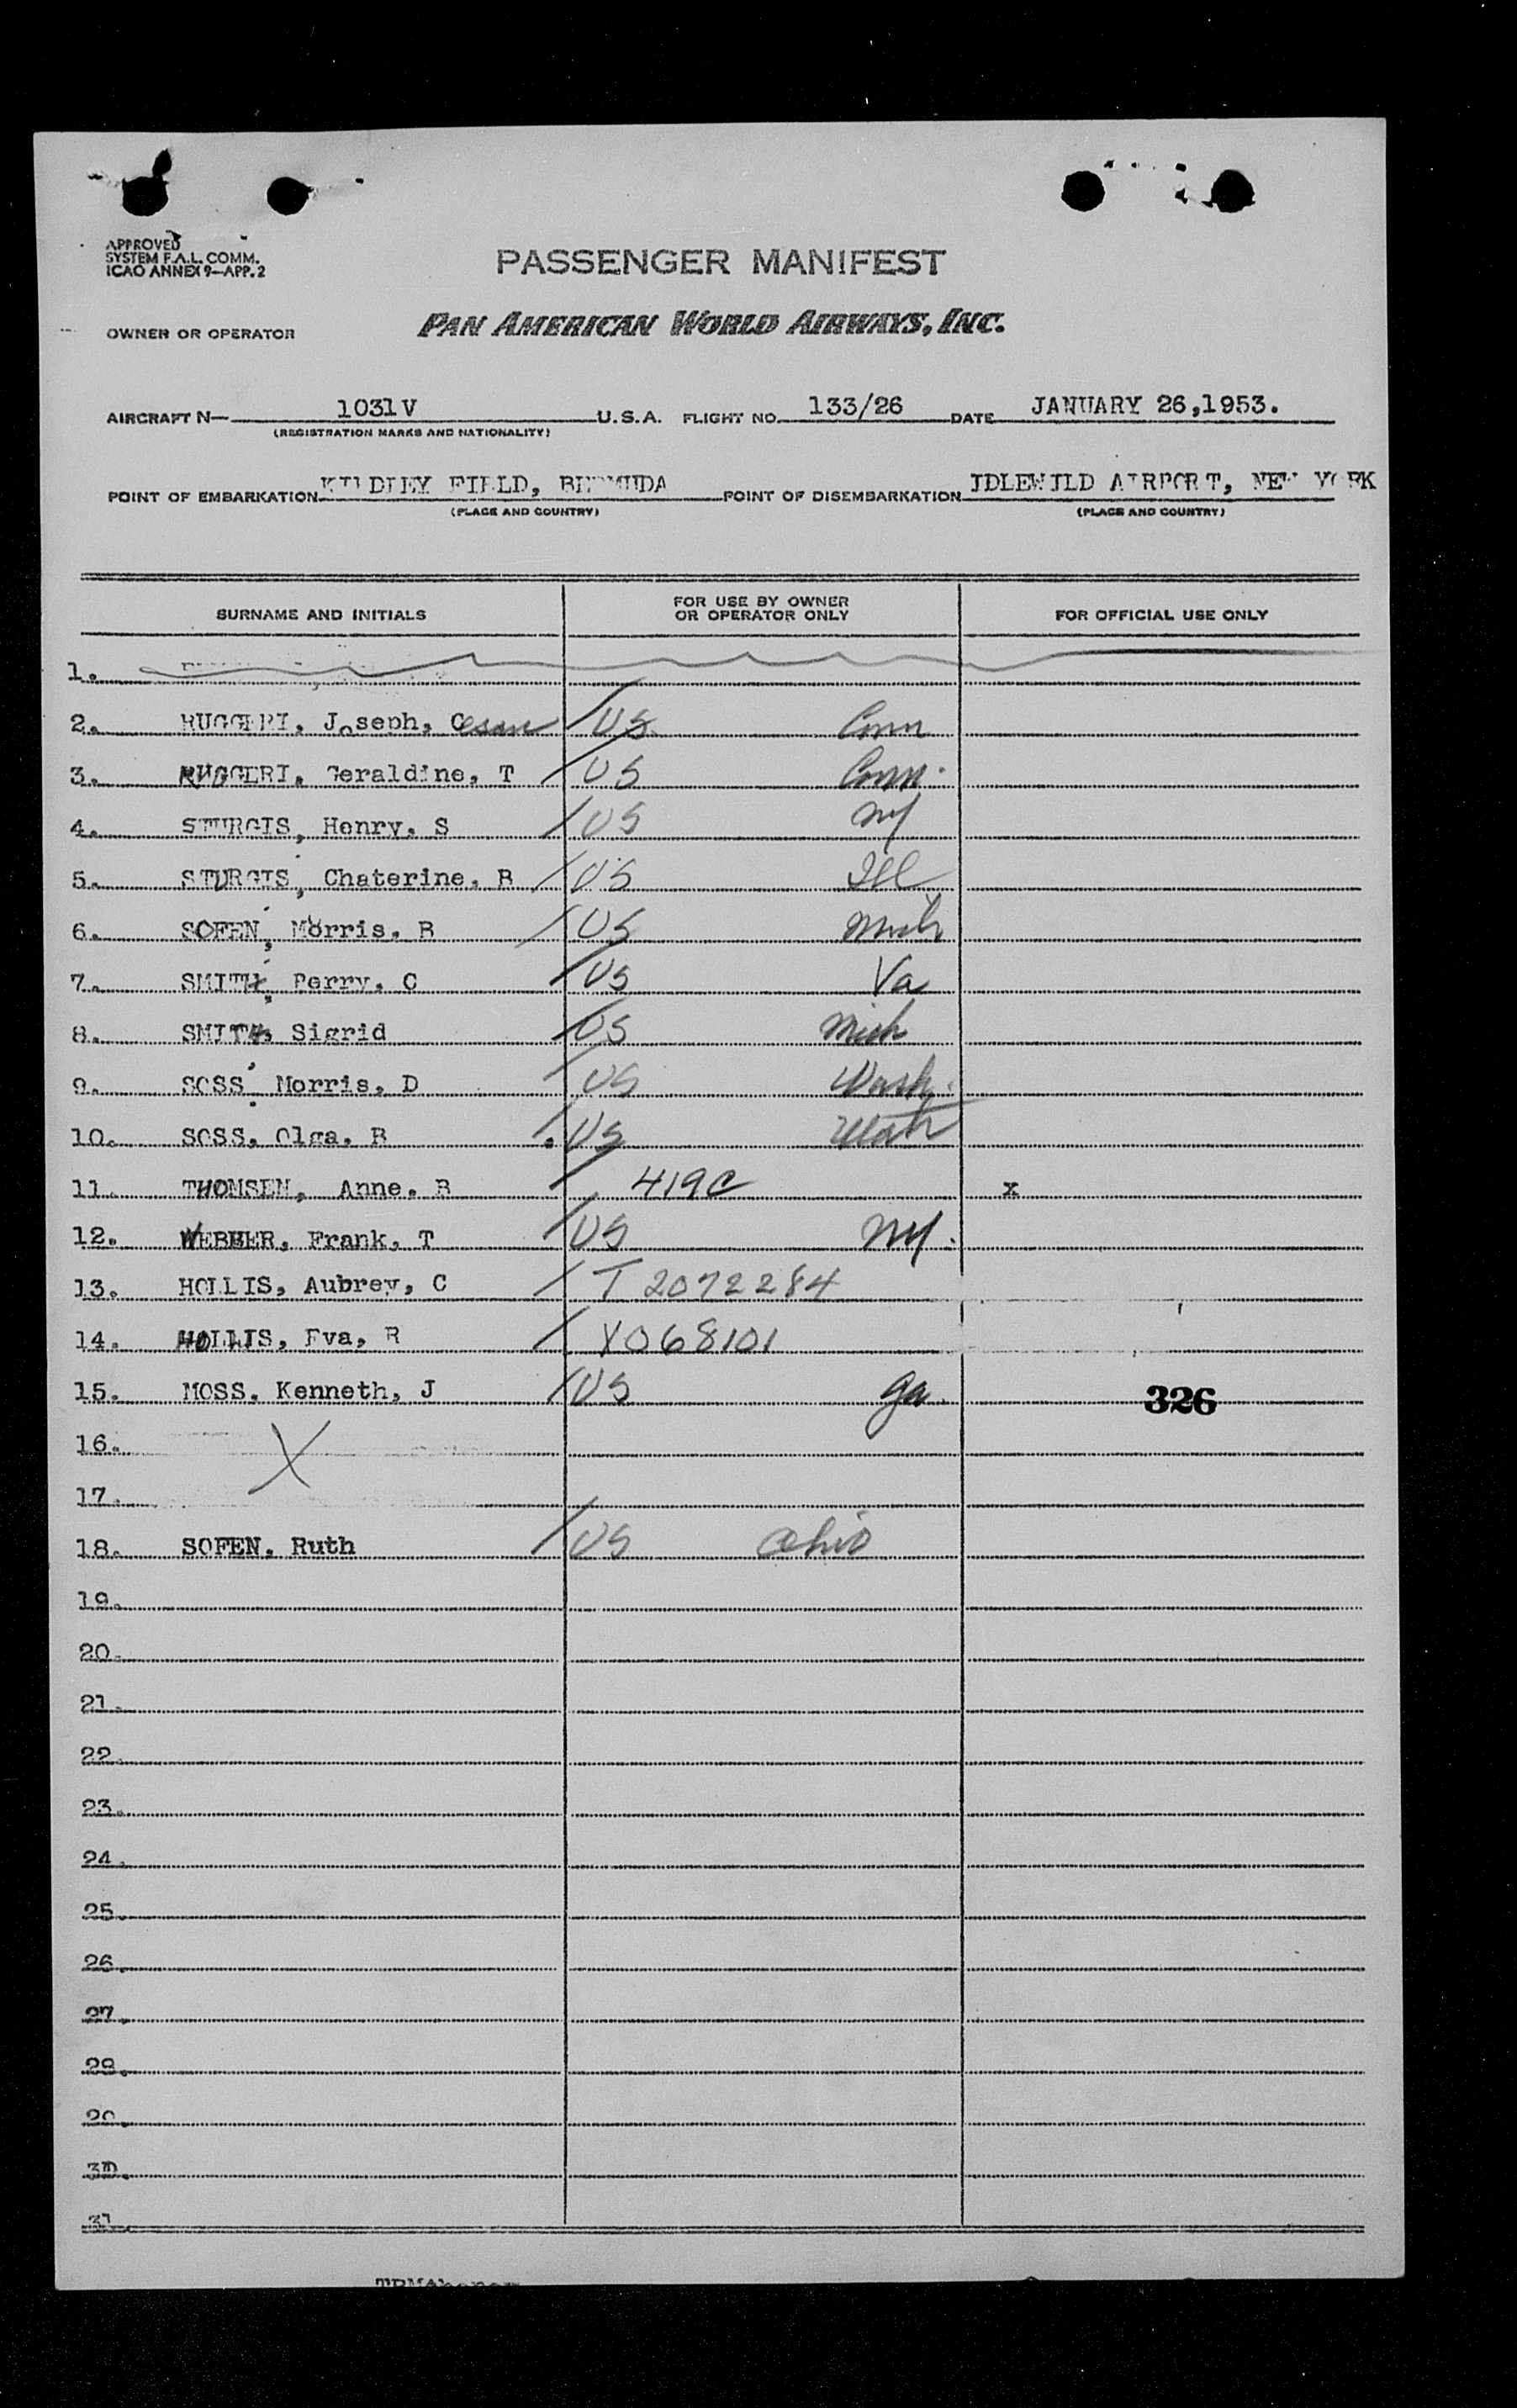 APPROVED
SYSTEM F.A.L. COMM.
ICAO ANNEX 9—APP. 2
PASSENGER MANIFEST
OWNER OR OPERATOR PAN AMERICAN WORLD AIRWAYS, INC.
AIRCRAFT N— 1031V U.S.A. FLIGHT NO. 133/26 DATE JANUARY 26,1953.
(REGISTRATION MARKS AND NATIONALITY)
POINT OF EMBARKATION KINDLEY FIELD, BERMUDA POINT OF DISEMBARKATION IDLEWILD AIRPORT, NEW YORK
(PLACE AND COUNTRY) (PLACE AND COUNTRY)
SURNAME AND INITIALS FOR USE BY OWNER OR OPERATOR ONLY FOR OFFICIAL USE ONLY
1.
2. RUGGERI, Joseph, Cesare / US Conn
3. RUGGERI, Geraldine, T / US Conn.
4. STURGIS, Henry, S / US NY
5. STURGIS, Chaterine, B / US Ill
6. SOFEN, Morris, B / US Mich
7. SMITH, Perry, C / US Va
8. SMITH, Sigrid / US Mich
9. SOSS, Morris, D / US Wash.
10. SOSS, Olga, B / US Utah
11. THOMSEN, Anne, B / 419C x
12. WEBHER, Frank, T / US NY.
13. HOLLIS, Aubrey, C / T 2072284
14. HOLLIS, Eva, R / Y068101
15. MOSS, Kenneth, J / US Ga. 326
16. X
17.
18. SOFEN, Ruth / US Ohio
19.
20.
21.
22.
23.
24.
25.
26.
27.
28.
29.
30.
31.